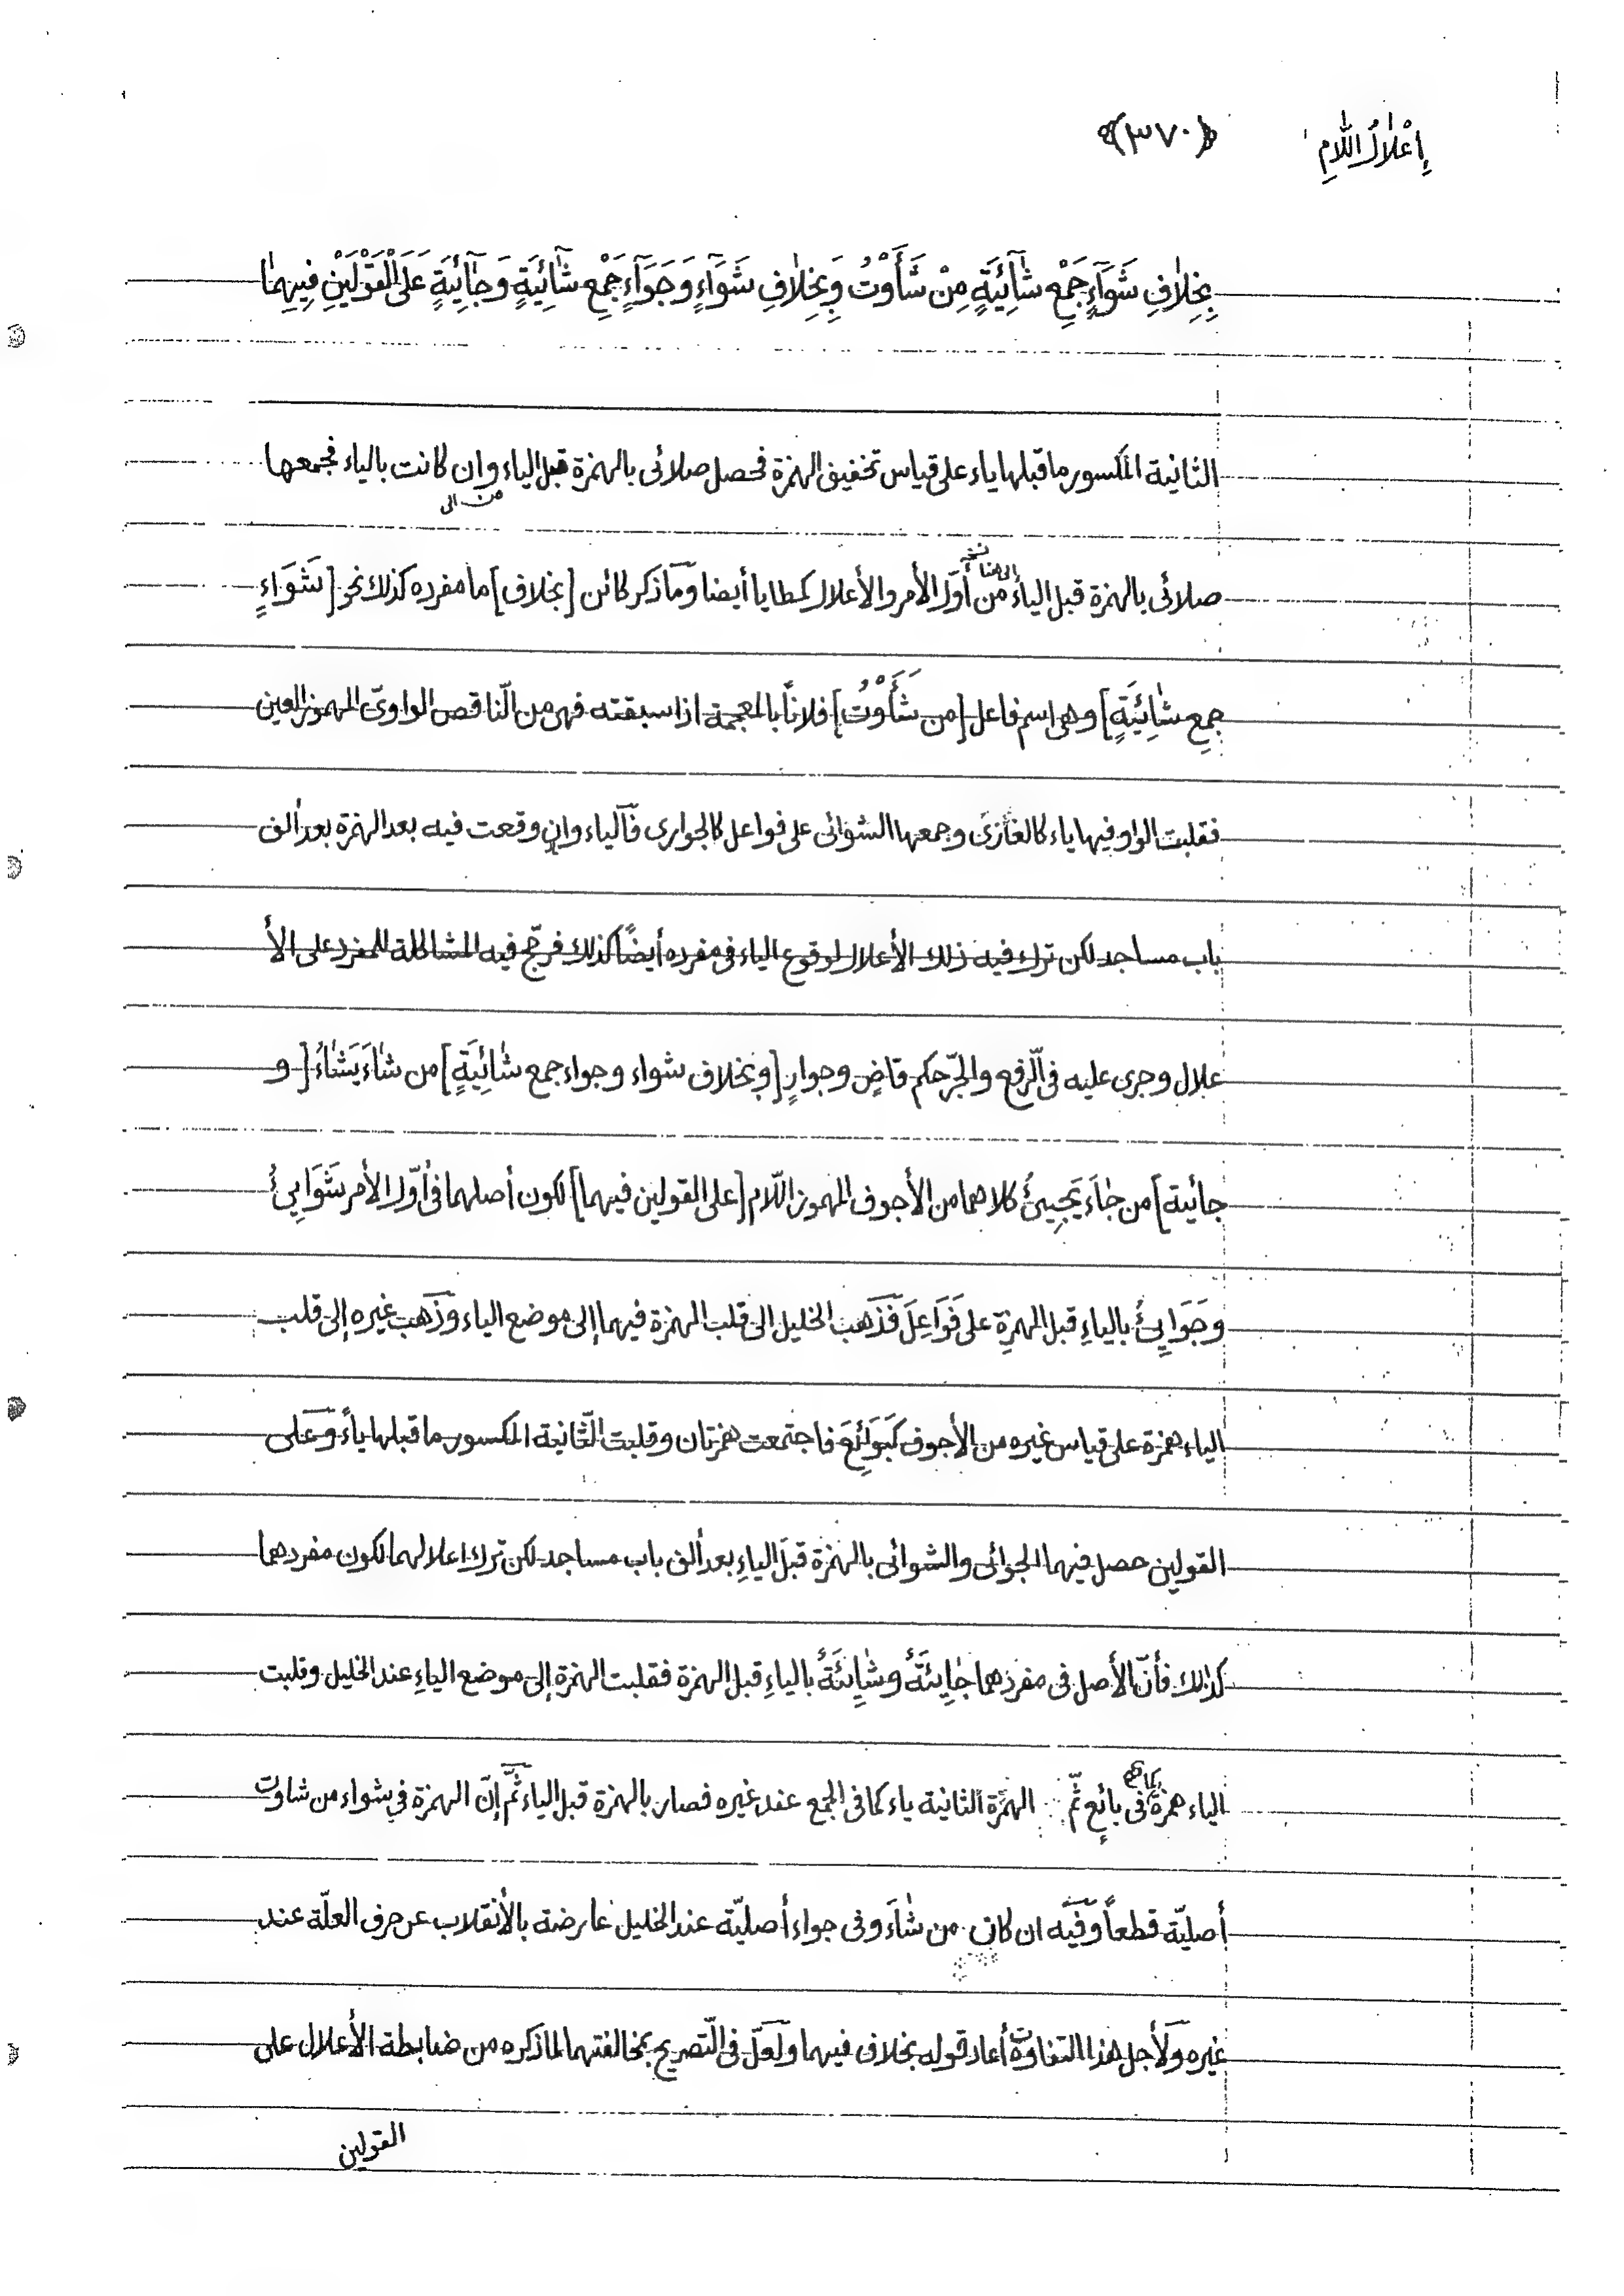 إِعْلَالُ اللَّامِ
﴿٣٧٠﴾
بِخِلَافِ شَوَآءٍ جَمْعِ شَآئِيَةٍ مِنْ شَأَوْتُ وَبِخِلَافِ شَوَآءٍ وَجَوَآءٍ جَمْعِ شَآئِيَةٍ وَجَآئِيَةٍ عَلَى الْقَوْلَيْنِ فِيهِمَا
الثانية المكسور ما قبلها ياء على قياس تخفيف الهمزة فحصل صلائى بالهمزة قبل الياء وان كانت بالياء فجمعها
من الى
صلائى بالهمزة قبل الياء من أوّل الأمر والأعلال كمطايا أيضا وما ذكر كائن [بخلاف] ما مفرده كذلك نحو [شَوَاءٍ
جمع شَائِيَةٍ] وهى اسم فاعل [من شَأَوْتُ] فلاناً بالمعجمة اذا سبقته فهى من النّاقص الواوىّ المهموز العين
فقلبت الواو فيها ياء كالغازى وجمعها الشوائى على فواعل كالجوارى فالياء وان وقعت فيه بعد الهمزة بعد ألف
باب مساجد لكن ترك فيه ذلك الأعلال لوقوع الياء فى مفرده أيضاً كذلك فرجّح فيه المشاكلة للمفرد على الأ
علال وجرى عليه فى الّرفع والجّر حكم قاضٍ وجوارٍ [و بخلاف شواء وجواء جمع شَائِيَةٍ] من شَاءَ يَشَاءُ [و
جائية] من جَاءَ يَجِيئُ كلاهما من الأجوف المهموز اللّام [على القولين فيهما] لكون أصلهما فى أوّل الأمر شَوَايِئُ
وجَوَايِئُ بالياءِ قبل الهمزةِ على فَوَاعِلَ فذهب الخليل الى قلب الهمزة فيهما إلى موضع الياء وذهب غيره إلى قلب
الياء همزة على قياس غيره من الأجوف كَبَوَائِعَ فاجتمعت همزتان وقلبت الثّانية المكسور ما قبلها ياءً وعلى
القولين حصل فيهما الجوائى والشوائى بالهمزة قبل الياءِ بعد ألف باب مساجد لكن ترك اعلالهما لكون مفردهما
كذلك فأنّ الأصل فى مفردهما جَايِئَةٌ وشَايِئَةٌ بالياءِ قبل الهمزة فقلبت الهمزة إلى موضع الياءِ عند الخليل وقلبت
الياء همزة كما هى فى بائع ثمّ الهمزة الثانية ياء كما فى الجمع عند غيره فصار بالهمزة قبل الياء ثمّ إنّ الهمزة فى شواء من شاوت
أصليّة قطعاً وفيه ان كان من شَاءَ وفى جواء أصليّة عند الخليل عارضة بالأنقلاب عن حرف العلّة عند
غيره ولأجل هذا التفاوت أعاد قوله بخلاف فيهما ولعلّ فى الّتصريح بمخالفتهما لما ذكره من ضابطة الأعلال على
القولين